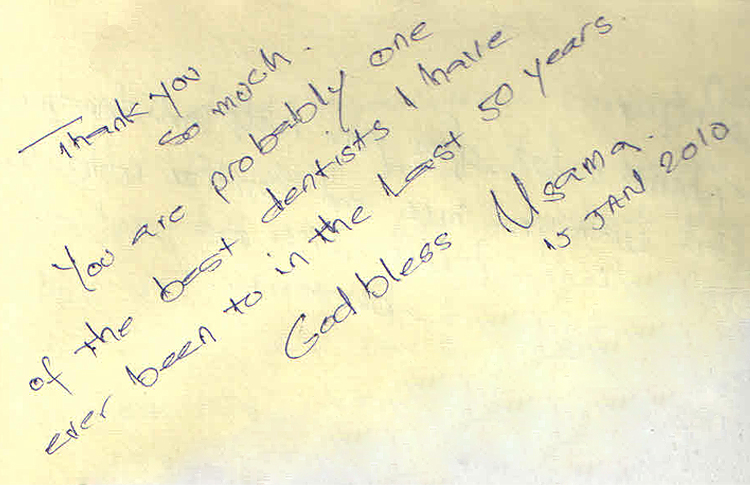 Thank you
so much.
You are probably one
of the best dentists I have
ever been to in the last 50 years.
God bless Usama.
15 JAN 2010